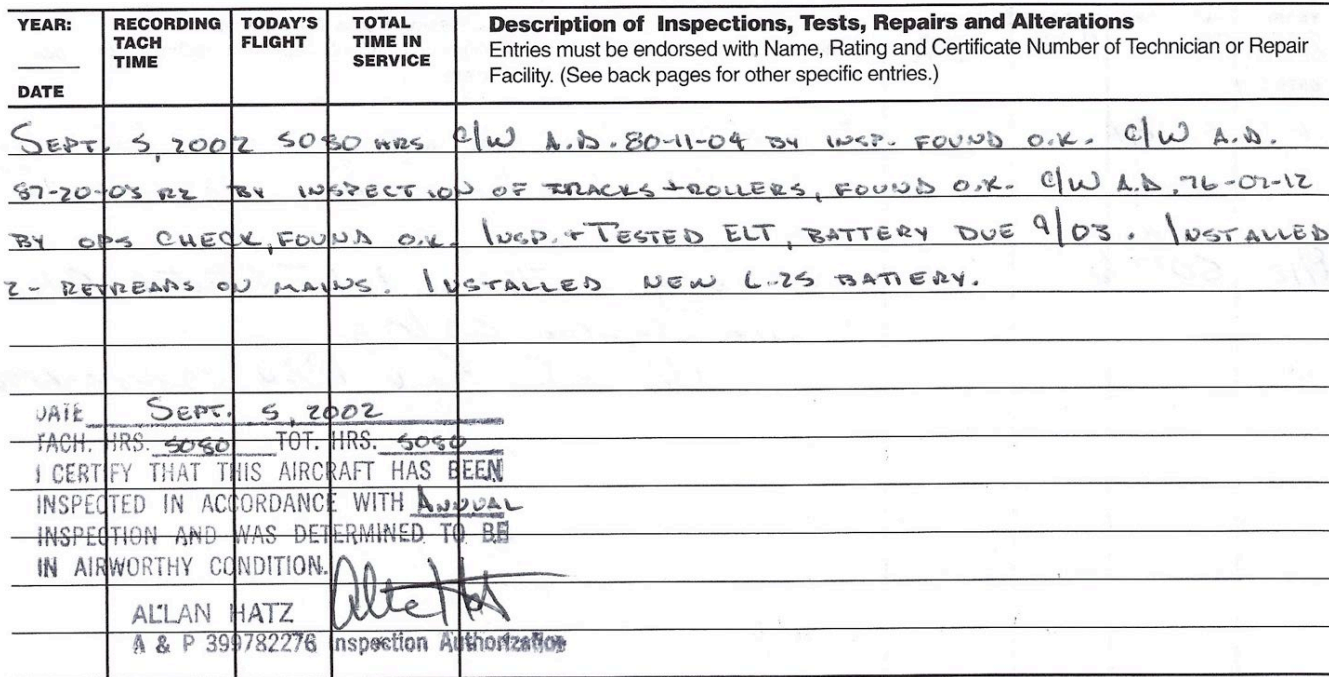 YEAR:
DATE
RECORDING TACH TIME
TODAY'S FLIGHT
TOTAL TIME IN SERVICE
Description of Inspections, Tests, Repairs and Alterations
Entries must be endorsed with Name, Rating and Certificate Number of Technician or Repair
Facility. (See back pages for other specific entries.)
SEPT. 5, 2002 5080 HRS C/W A.D. 80-11-04 BY INSP. FOUND O.K. C/W A.D.
87-20-03 R2 BY INSPECTION OF TRACKS + ROLLERS, FOUND O.K. C/W A.D. 76-07-12
BY OPS CHECK, FOUND O.K. INSP. + TESTED ELT, BATTERY DUE 9/03. INSTALLED
2 - RETREADS ON MAINS. INSTALLED NEW G-25 BATTERY.
DATE SEPT. 5, 2002
TACH. HRS. 5080 TOT. HRS. 5080
I CERTIFY THAT THIS AIRCRAFT HAS BEEN
INSPECTED IN ACCORDANCE WITH ANNUAL
INSPECTION AND WAS DETERMINED TO BE
IN AIRWORTHY CONDITION.
ALLAN HATZ
A & P 399782276 Inspection Authorization